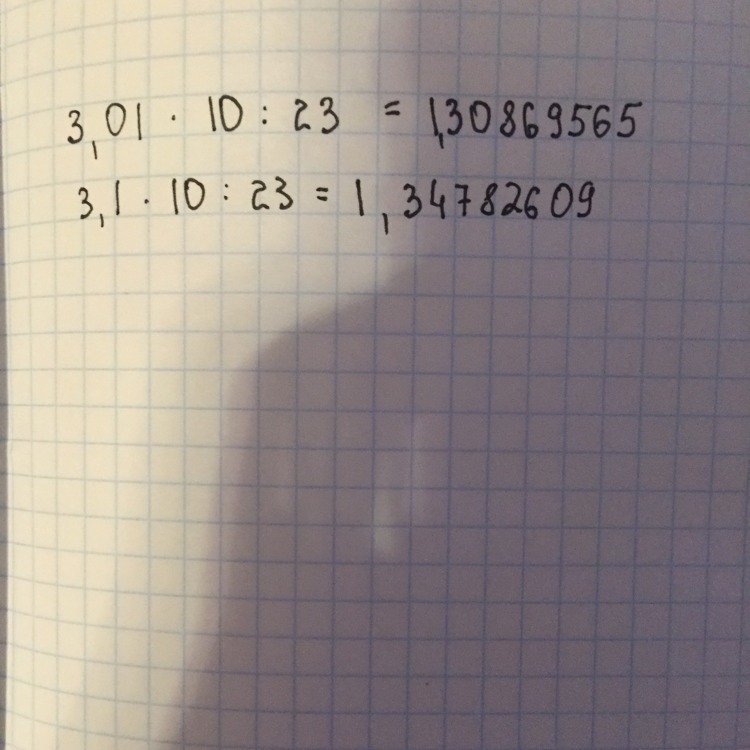 3,01 · 10 : 23 = 1,30869565
3,1 · 10 : 23 = 1,34782609